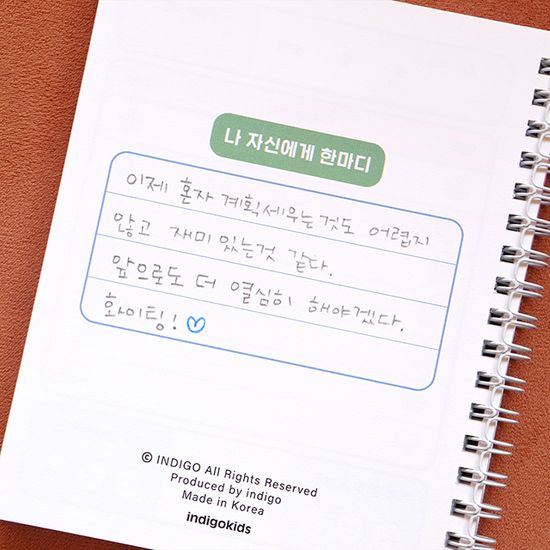 나 자신에게 한마디
이제 혼자 계획세우는것도 어렵지
않고 재미있는것 같다.
앞으로도 더 열심히 해야겠다.
화이팅! ♡
© INDIGO All Rights Reserved
Produced by indigo
Made in Korea
indigokids